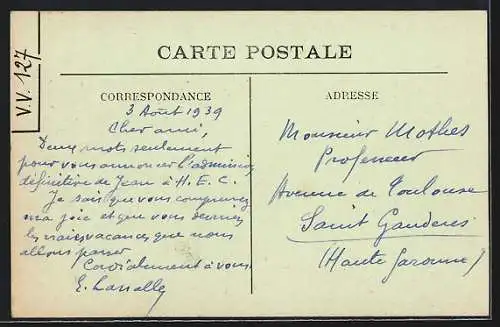 V.V. 127
CARTE POSTALE
CORRESPONDANCE
3 Août 1939
Cher ami,
Deux mots seulement
pour vous annoncer l'admission
définitive de Jean à H.E.C.
Je sais que vous comprenez
ma joie et que vous devinez
les vraies vacances que nous
allons passer
Cordialement à vous
E. Lassalle
ADRESSE
Monsieur Mathes
Professeur
Avenue de Toulouse
Saint Gaudens
(Haute Garonne)